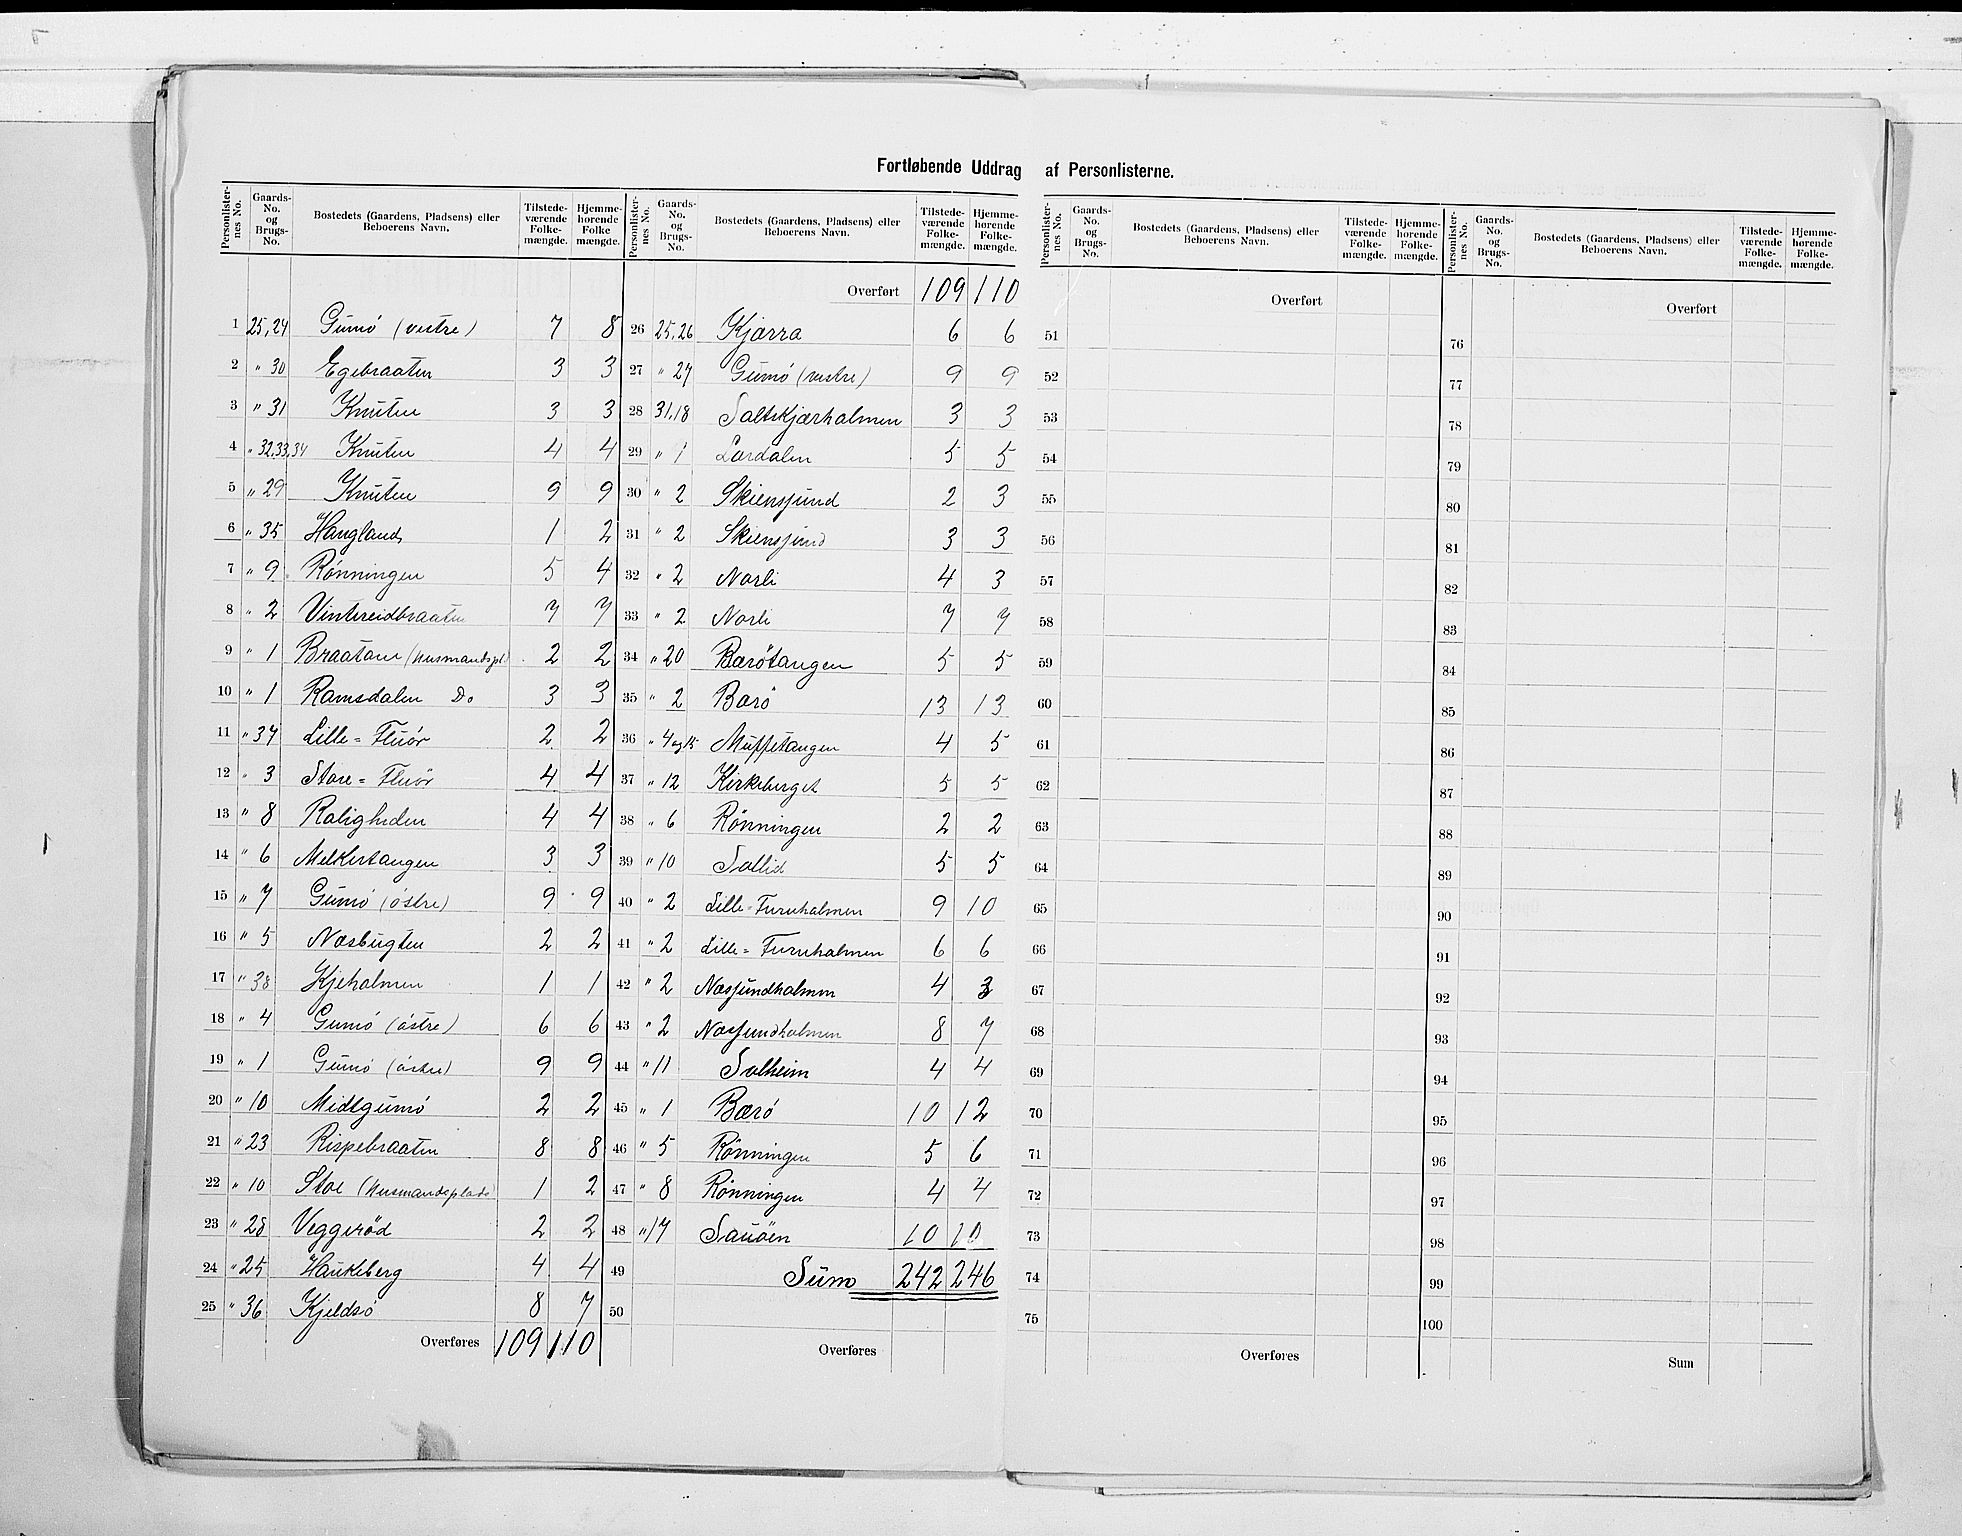 Fortløbende Uddrag af Personlisterne.
Personlister-nes No. | Gaards-No. og Brugs-No. | Bostedets (Gaardens, Pladsens) eller Beboerens Navn. | Tilstede-værende Folke-mængde. | Hjemme-hørende Folke mængde.
1 25,24 Gumö (vestre) 7 8
2 " 30 Egebraaten 3 3
3 " 31 Knuten 3 3
4 " 32,33,34 Knuten 4 4
5 " 29 Knuten 9 9
6 " 35 Haugland 1 2
7 " 9 Rönningen 5 4
8 " 2 Vintereidbraaten 7 7
9 " 1 Braatane (Husmandspl.) 2 2
10 " 1 Ramsdalen Do 3 3
11 " 37 Lille=Fluör 2 2
12 " 3 Store=Fluör 4 4
13 " 8 Roligheden 4 4
14 " 6 Melkertangen 3 3
15 " 7 Gumö (östre) 9 9
16 " 5 Næsbugten 2 2
17 " 38 Kjeholmen 1 1
18 " 4 Gumö (östre) 6 6
19 " 1 Gumö (östre) 9 9
20 " 10 Midtgumö 2 2
21 " 23 Rispebraaten 8 8
22 " 10 Stoe (Husmandsplads) 1 2
23 " 28 Veggeröd 2 2
24 " 25 Haukeberg 4 4
25 " 36 Kjeldsö 8 7
Overføres 109 110
Personlister-nes No. | Gaards-No. og Brugs-No. | Bostedets (Gaardens, Pladsens) eller Beboerens Navn. | Tilstede-værende Folke-mængde. | Hjemme-hørende Folke-mængde.
Overført 109 110
26 25,26 Kjærra 6 6
27 " 27 Gumö (vestre) 9 9
28 31,18 Saltskjærholmen 3 3
29 " 1 Lærdalen 5 5
30 " 2 Skienssund 2 3
31 " 2 Skienssund 3 3
32 " 2 Norli 4 3
33 " 2 Norli 7 7
34 " 20 Barötangen 5 5
35 " 2 Barö 13 13
36 " 4 og 15 Muffetangen 4 5
37 " 12 Kirkeberget 5 5
38 " 6 Rönningen 2 2
39 " 10 Sollid 5 5
40 " 2 Lille=Furuholmen 9 10
41 " 2 Lille=Furuholmen 6 6
42 " 2 Næssundholmen 4 3
43 " 2 Næssundholmen 8 7
44 " 11 Solheim 4 4
45 " 1 Barö 10 12
46 " 5 Rönningen 5 6
47 " 8 Rönningen 4 4
48 " 17 Sauöen 10 10
49 Sum 242 246
50
Overføres
Personlister-nes No. | Gaards-No. og Brugs-No. | Bostedets (Gaardens, Pladsens) eller Beboerens Navn. | Tilstede-værende Folke-mængde. | Hjemme-hørende Folke-mængde.
Overført
51
52
53
54
55
56
57
58
59
60
61
62
63
64
65
66
67
68
69
70
71
72
73
74
75
Overføres
Personlister-nes No. | Gaards-No. og Brugs-No. | Bostedets (Gaardens, Pladsens) eller Beboerens Navn. | Tilstede-værende Folke-mængde. | Hjemme-hørende Folke-mængde.
Overført
76
77
78
79
80
81
82
83
84
85
86
87
88
89
90
91
92
93
94
95
96
97
98
99
100
Sum